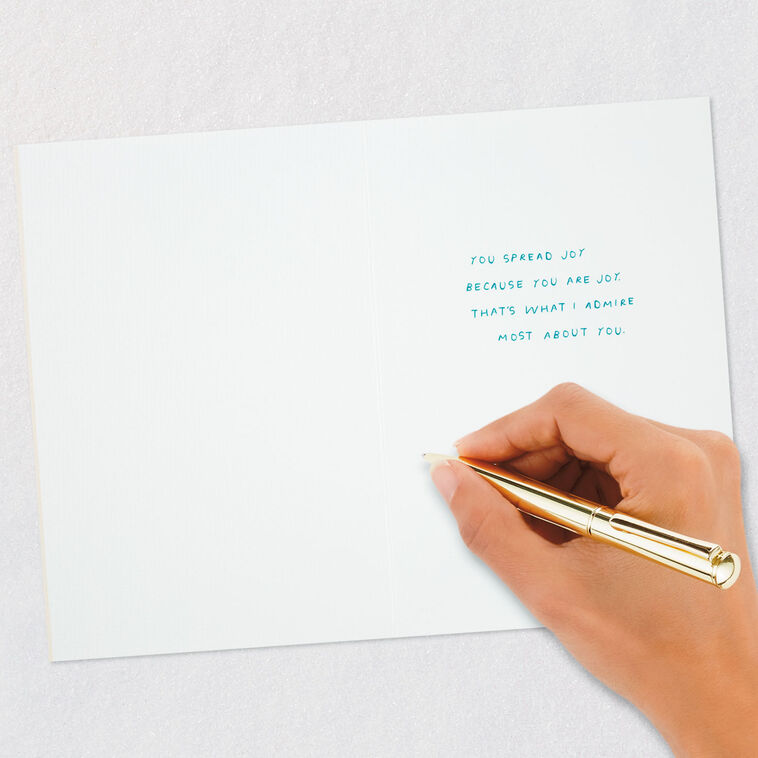 YOU SPREAD JOY
BECAUSE YOU ARE JOY.
THAT'S WHAT I ADMIRE
MOST ABOUT YOU.